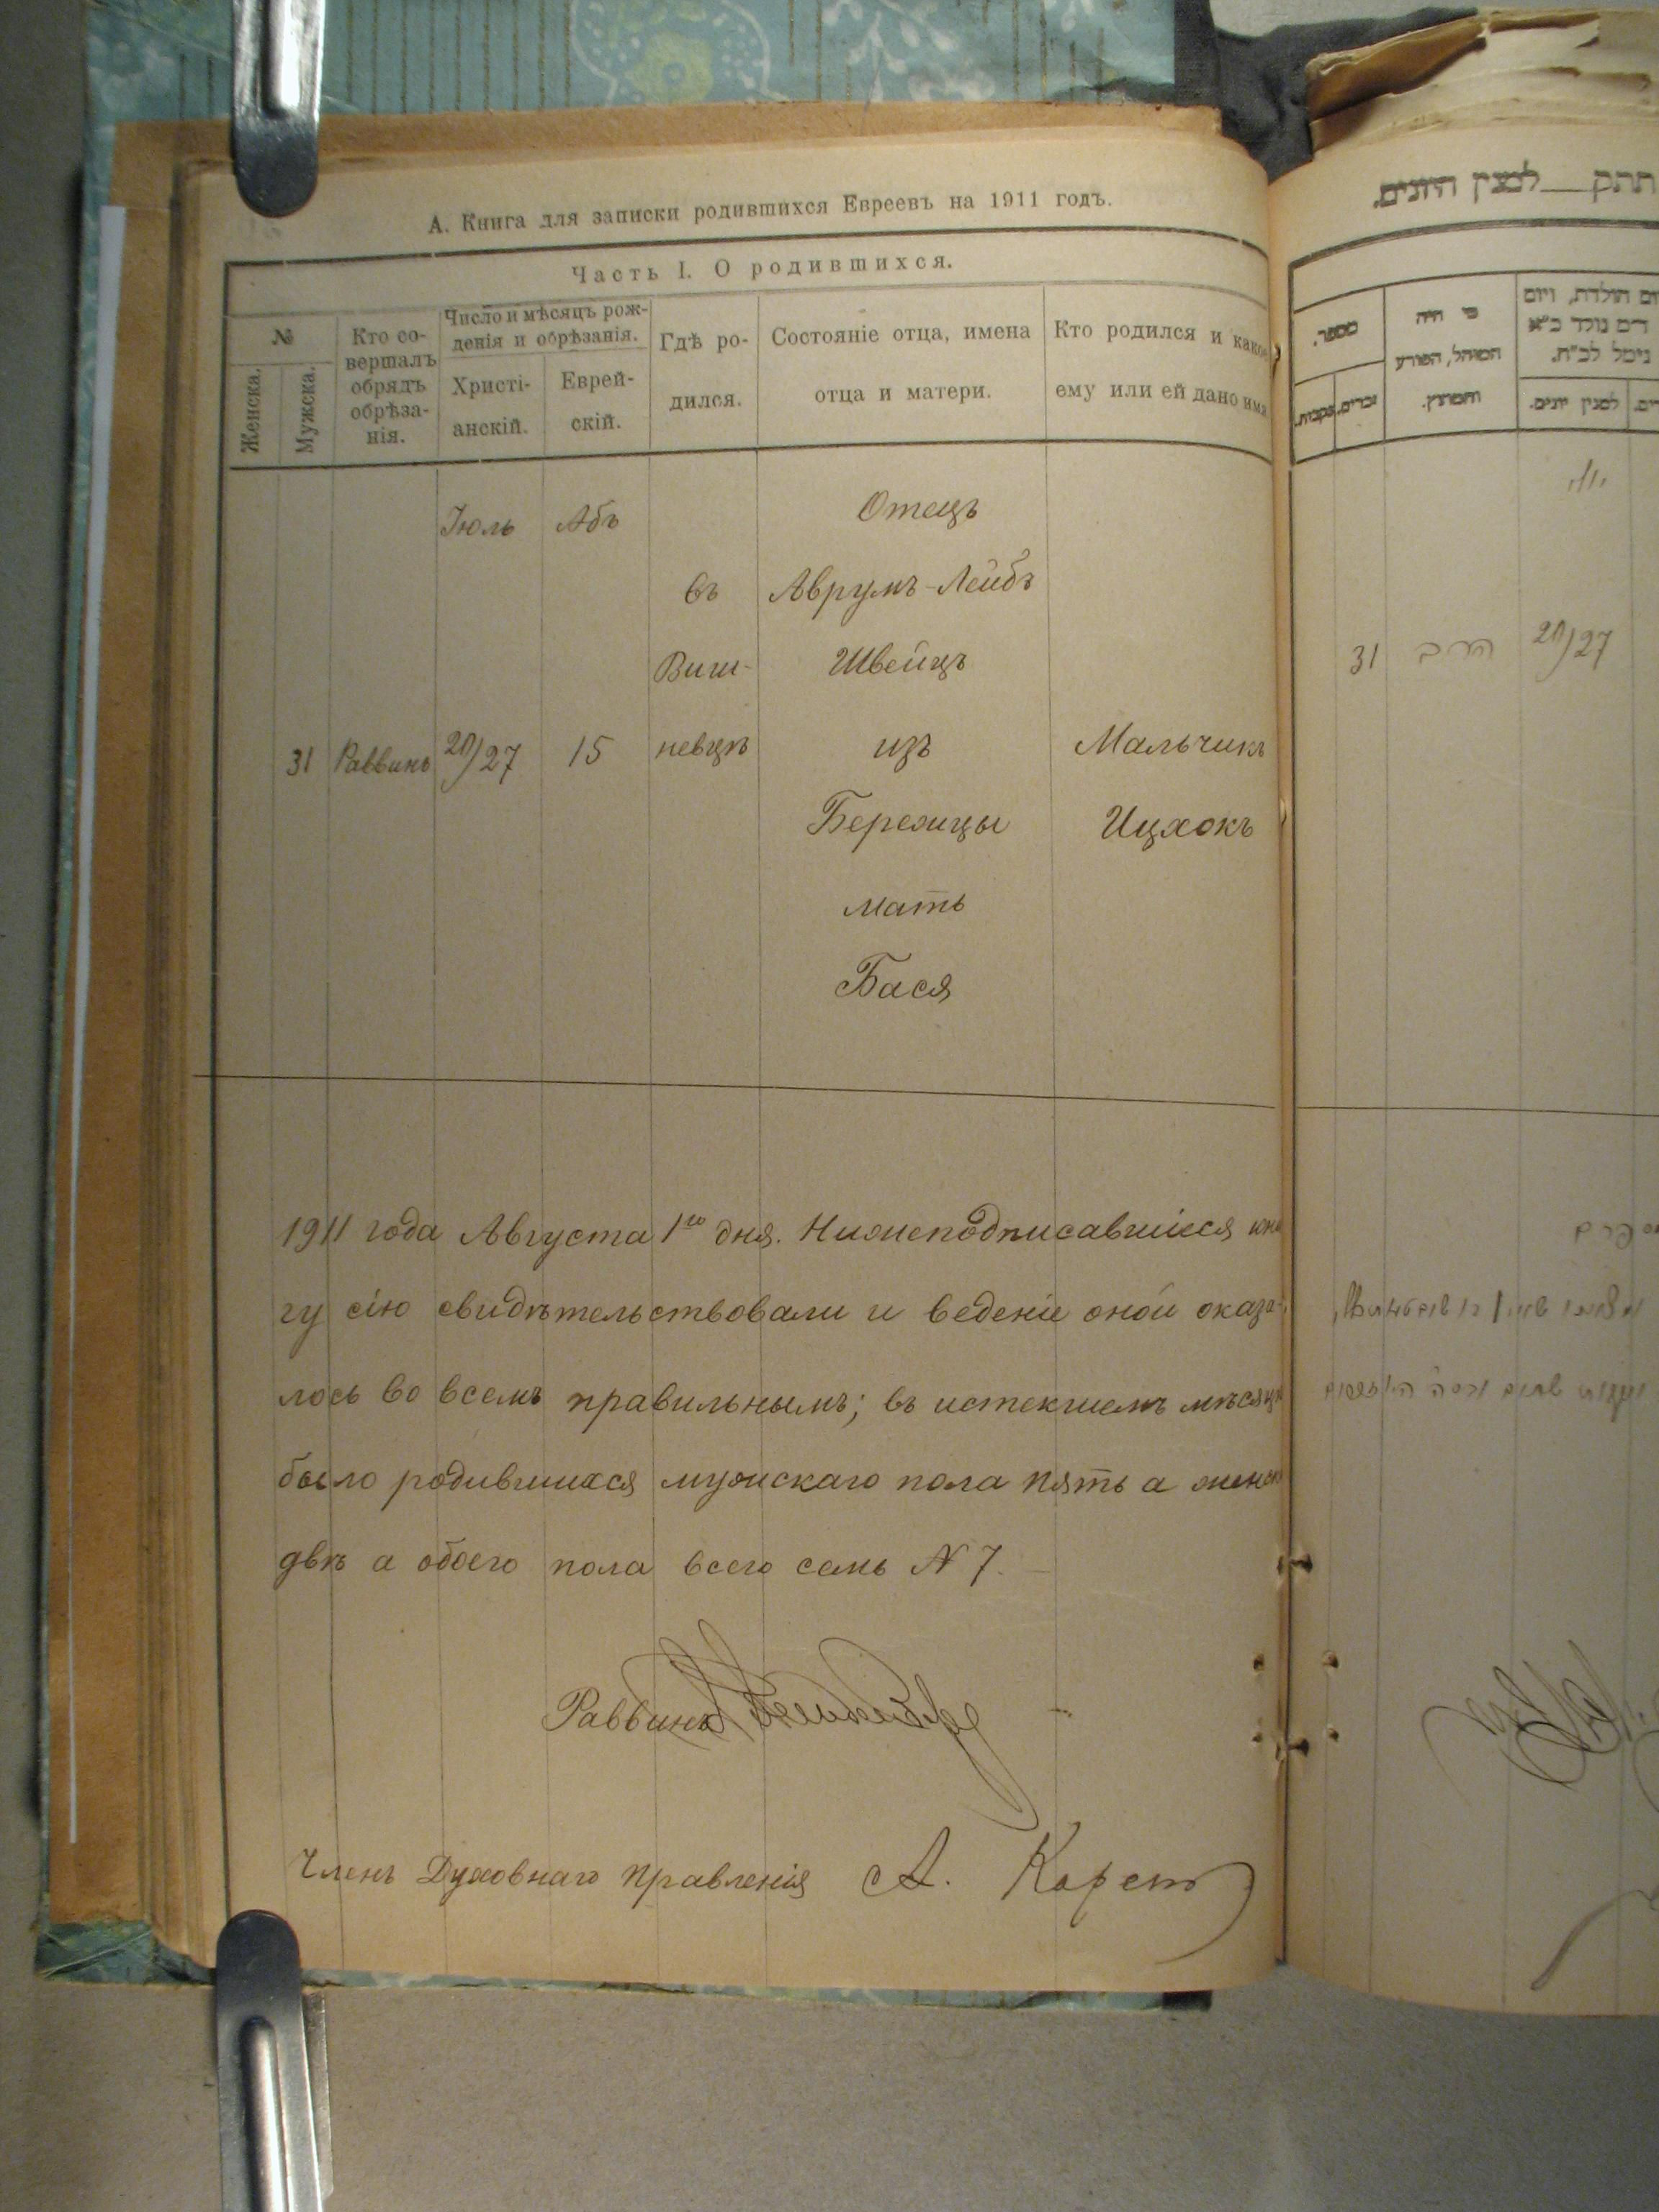 А. Книга для записки родившихся Евреевъ на 1911 годъ.
Часть I. О родившихся.
№
Женска.
Мужска.
Кто со-
вершалъ
обрядъ
обрѣза-
нія.
Число и мѣсяцъ рож-
денія и обрѣзанія.
Христі-
анскій.
Еврей-
скій.
Гдѣ ро-
дился.
Состояніе отца, имена
отца и матери.
Кто родился и какое
ему или ей дано имя
31
Раввинъ
Іюль
20/27
Абъ
15
въ
Виш-
невцѣ
Отецъ
Аврумъ-Лейбъ
Швейцъ
изъ
Бережцы
мать
Бася
Мальчикъ
Ицхокъ
1911 года Августа 1го дня. Нижеподписавшіеся кни
гу сію свидѣтельствовали и веденіе оной оказа-
лось во всемъ правильнымъ; въ истекшемъ мѣсяцѣ
было родившихся мужскаго пола пять а женск
двѣ а обоего пола всего семь N 7.
Раввинъ
Членъ Духовнаго Правленія А.
תתק לנצין היונים.
מספר.
זכרים.
נקבות.
מי היה
המוהל, הפורע
והמוצץ.
יום הולדת, ויום
למנין יונים.
31
הרב
20/27